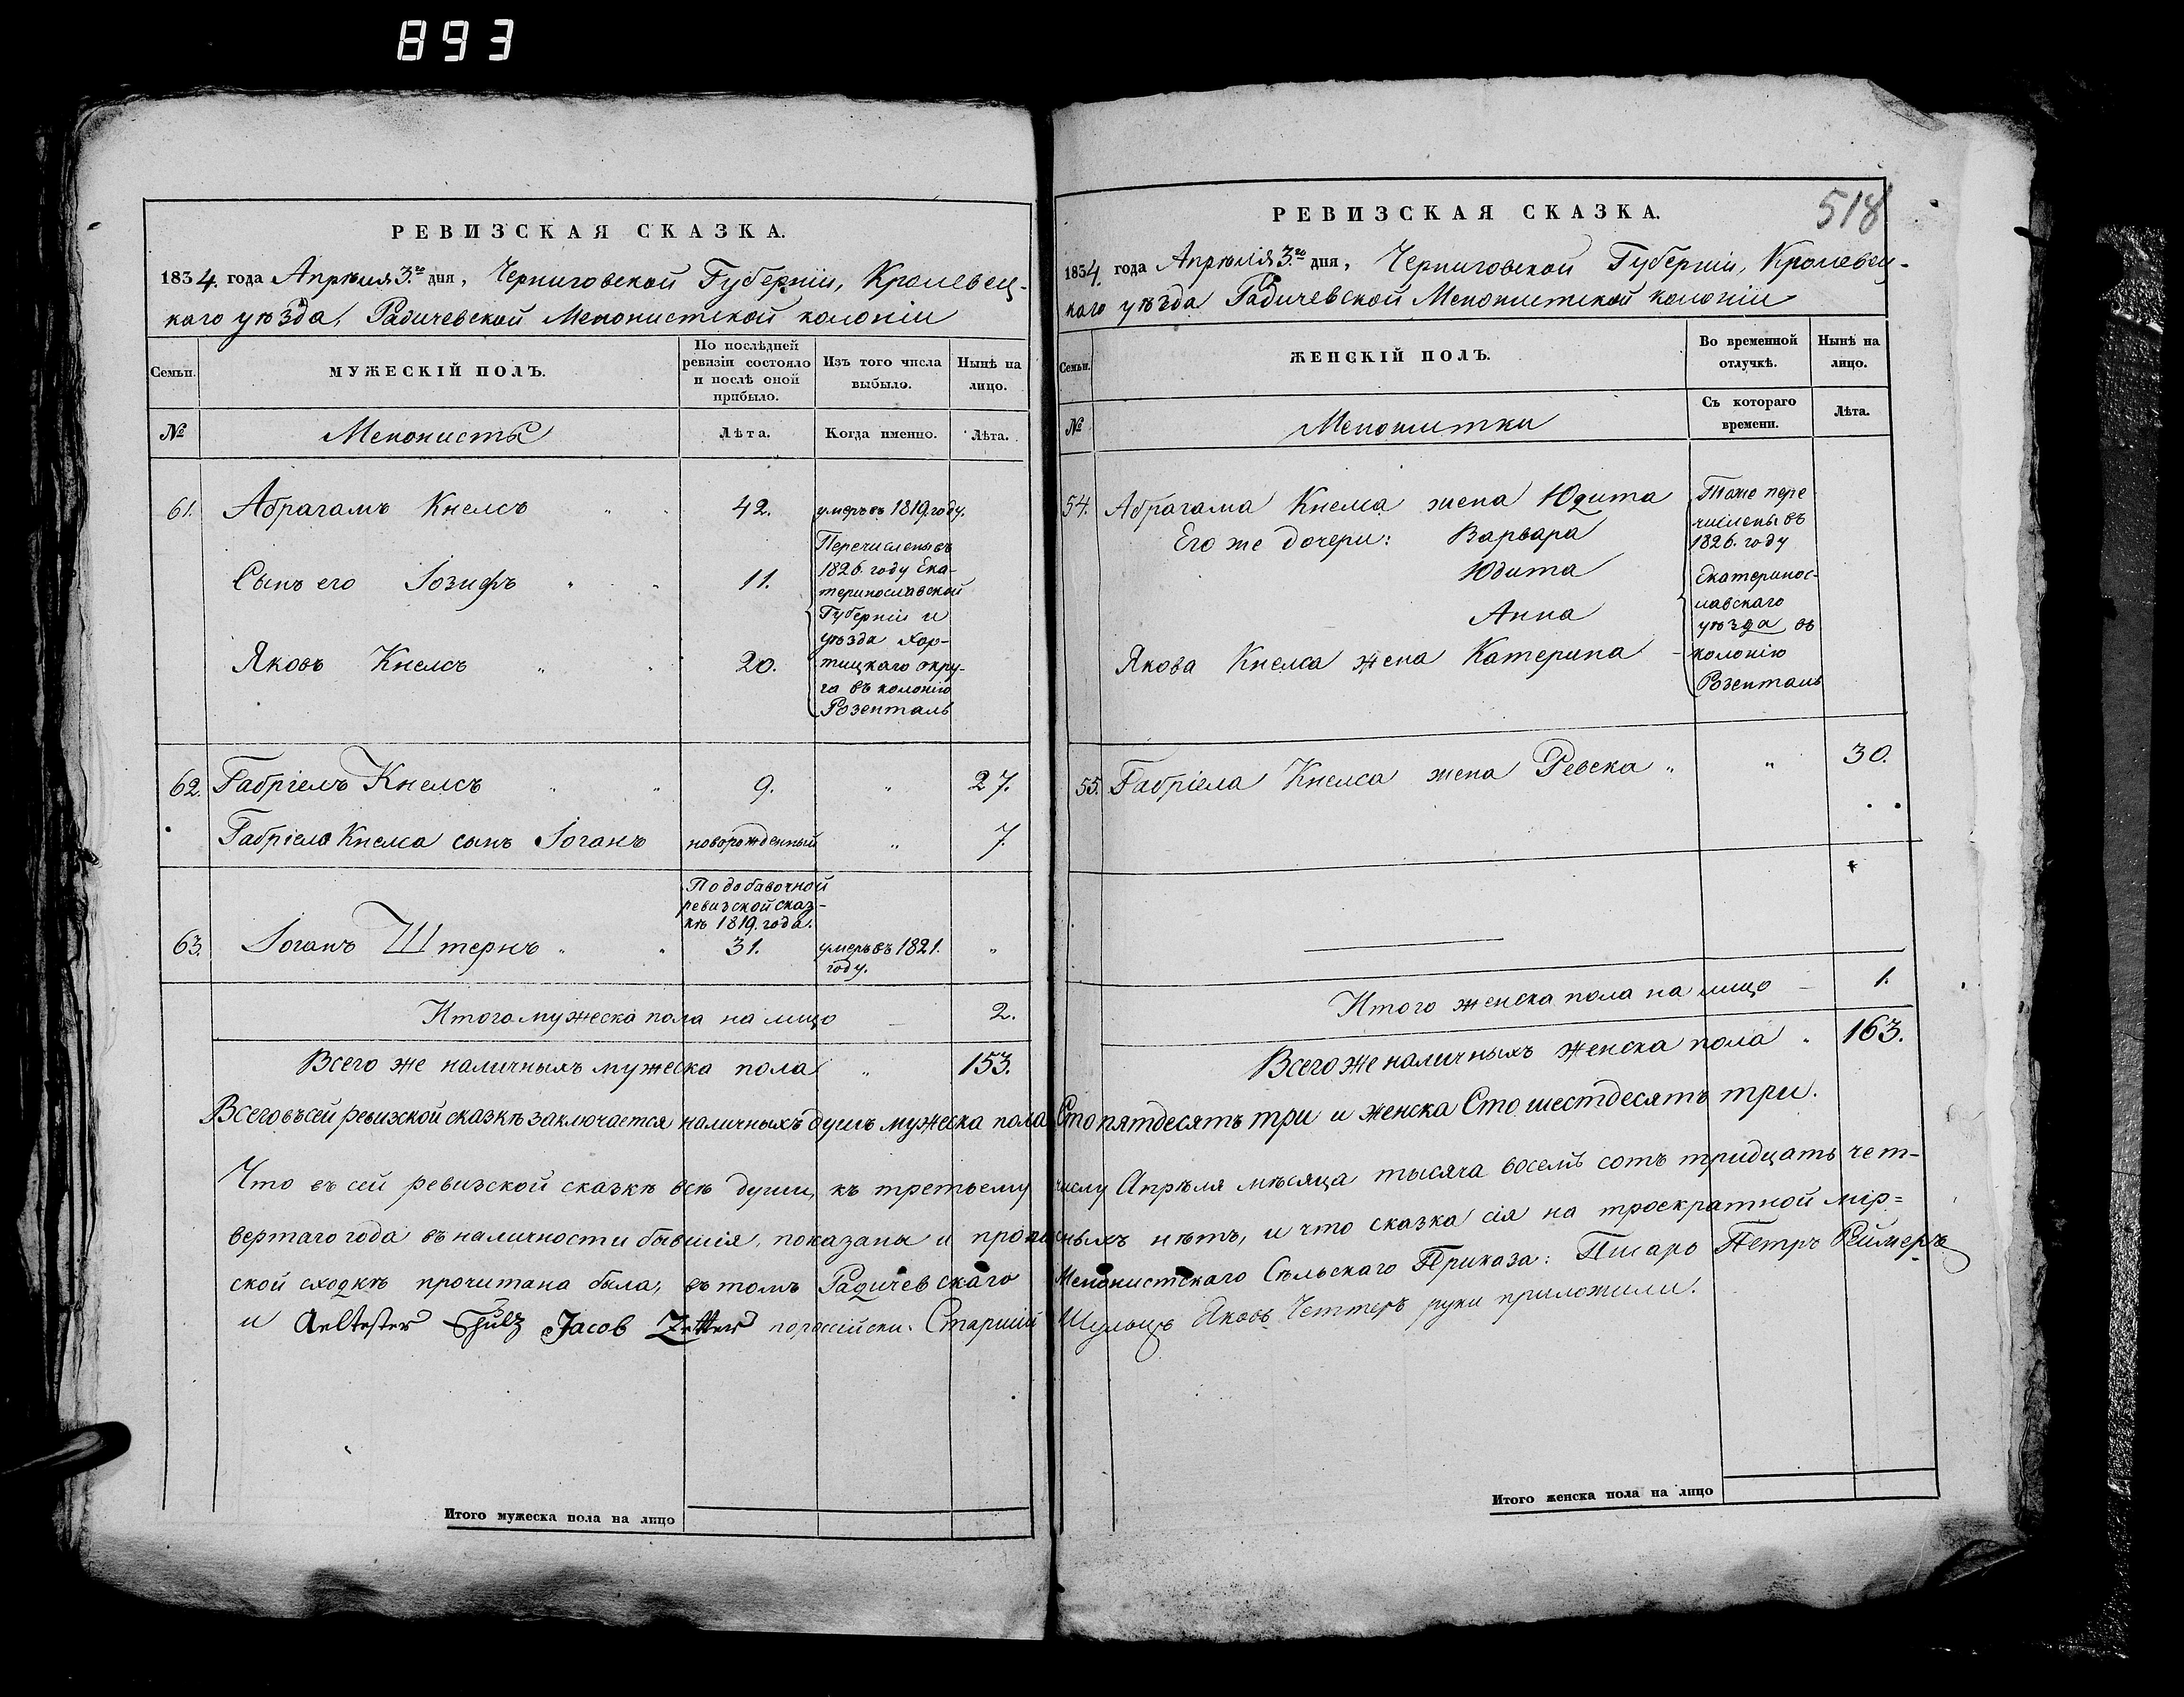 893
РЕВИЗСКАЯ СКАЗКА.
1834. года Апрѣля 3.го дня, Черниговской Губерніи, Кролевец-
каго уѣзда, Радичевской Менонистской колоніи
Семьи.
МУЖЕСКІЙ ПОЛЪ.
По послѣдней
ревизіи состояло
и послѣ оной
прибыло.
Изъ того числа
выбыло.
Нынѣ на
лицо.
№
Менонисты
Лѣта.
Когда именно.
Лѣта.
61. Абрагамъ Кнелсъ " " 42. умеръ въ 1819. году.
Сынъ его Іозифъ " " 11.
Яковъ Кнелсъ " " 20.
Перечислены въ
1826. году Ека-
теринославской
Губерніи и
уѣзда Хор-
тицкаго окру-
га въ колонію
Розенталь
62. Габріелъ Кнелсъ " " 9. " 27.
Габріела Кнелса сынъ Іоганъ новорожденный " 7.
По добавочной
ревизской сказ-
кѣ 1819. года.
63. Іоганъ Штернъ " " 31. умеръ въ 1821. "
году.
Итого мужеска пола на лицо 2.
Всего же наличныхъ мужеска пола " 153.
518
РЕВИЗСКАЯ СКАЗКА.
1834. года Апрѣлія 3.го дня, Черниговской Губерніи, Кролевец-
каго уѣзда Радичевской Менонистской колоніи
Семьи.
ЖЕНСКІЙ ПОЛЪ.
Во временной
отлучкѣ.
Нынѣ на
лицо.
№
Менонистки
Съ котораго
времени.
Лѣта.
54. Абрагама Кнелса жена Юдита
Его же дочери: Варвара
Юдита
Анна
Якова Кнелса жена Катерина
Тоже пере
числены въ
1826. году
Екатеринос-
лавскаго
уѣзда въ
колонію
Розенталь
55. Габріела Кнелса жена Ревека " " 30.
Итого женска пола на лицо 1.
Всего же наличныхъ женска пола " 163.
Всего въ сей ревизской сказкѣ заключается наличныхъ душъ мужеска пола Сто пятдесятъ три и женска Сто шестдесятъ три.
Что въ сей ревизской сказкѣ всѣ души, къ третьему числу Апрѣля мѣсяца тысяча восемь сотъ тридцать чет-
вертаго года въ наличности бывшія, показаны и прописныхъ нѣтъ, и что сказка сія на троекратной мір=
ской сходкѣ прочитана была, въ томъ Радичевскаго Менонистскаго Сѣльскаго Приказа: Писарь Петръ Реймеръ
и Aeltester Schulz Jacob Zetter пороссійски: Старшій Шульцъ Яковъ Четтеръ руки приложили.
Итого мужеска пола на лицо
Итого женска пола на лицо